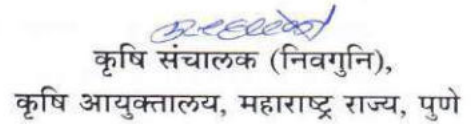 कृषि संचालक (निवगुनि),
कृषि आयुक्तालय, महाराष्ट्र राज्य, पुणे